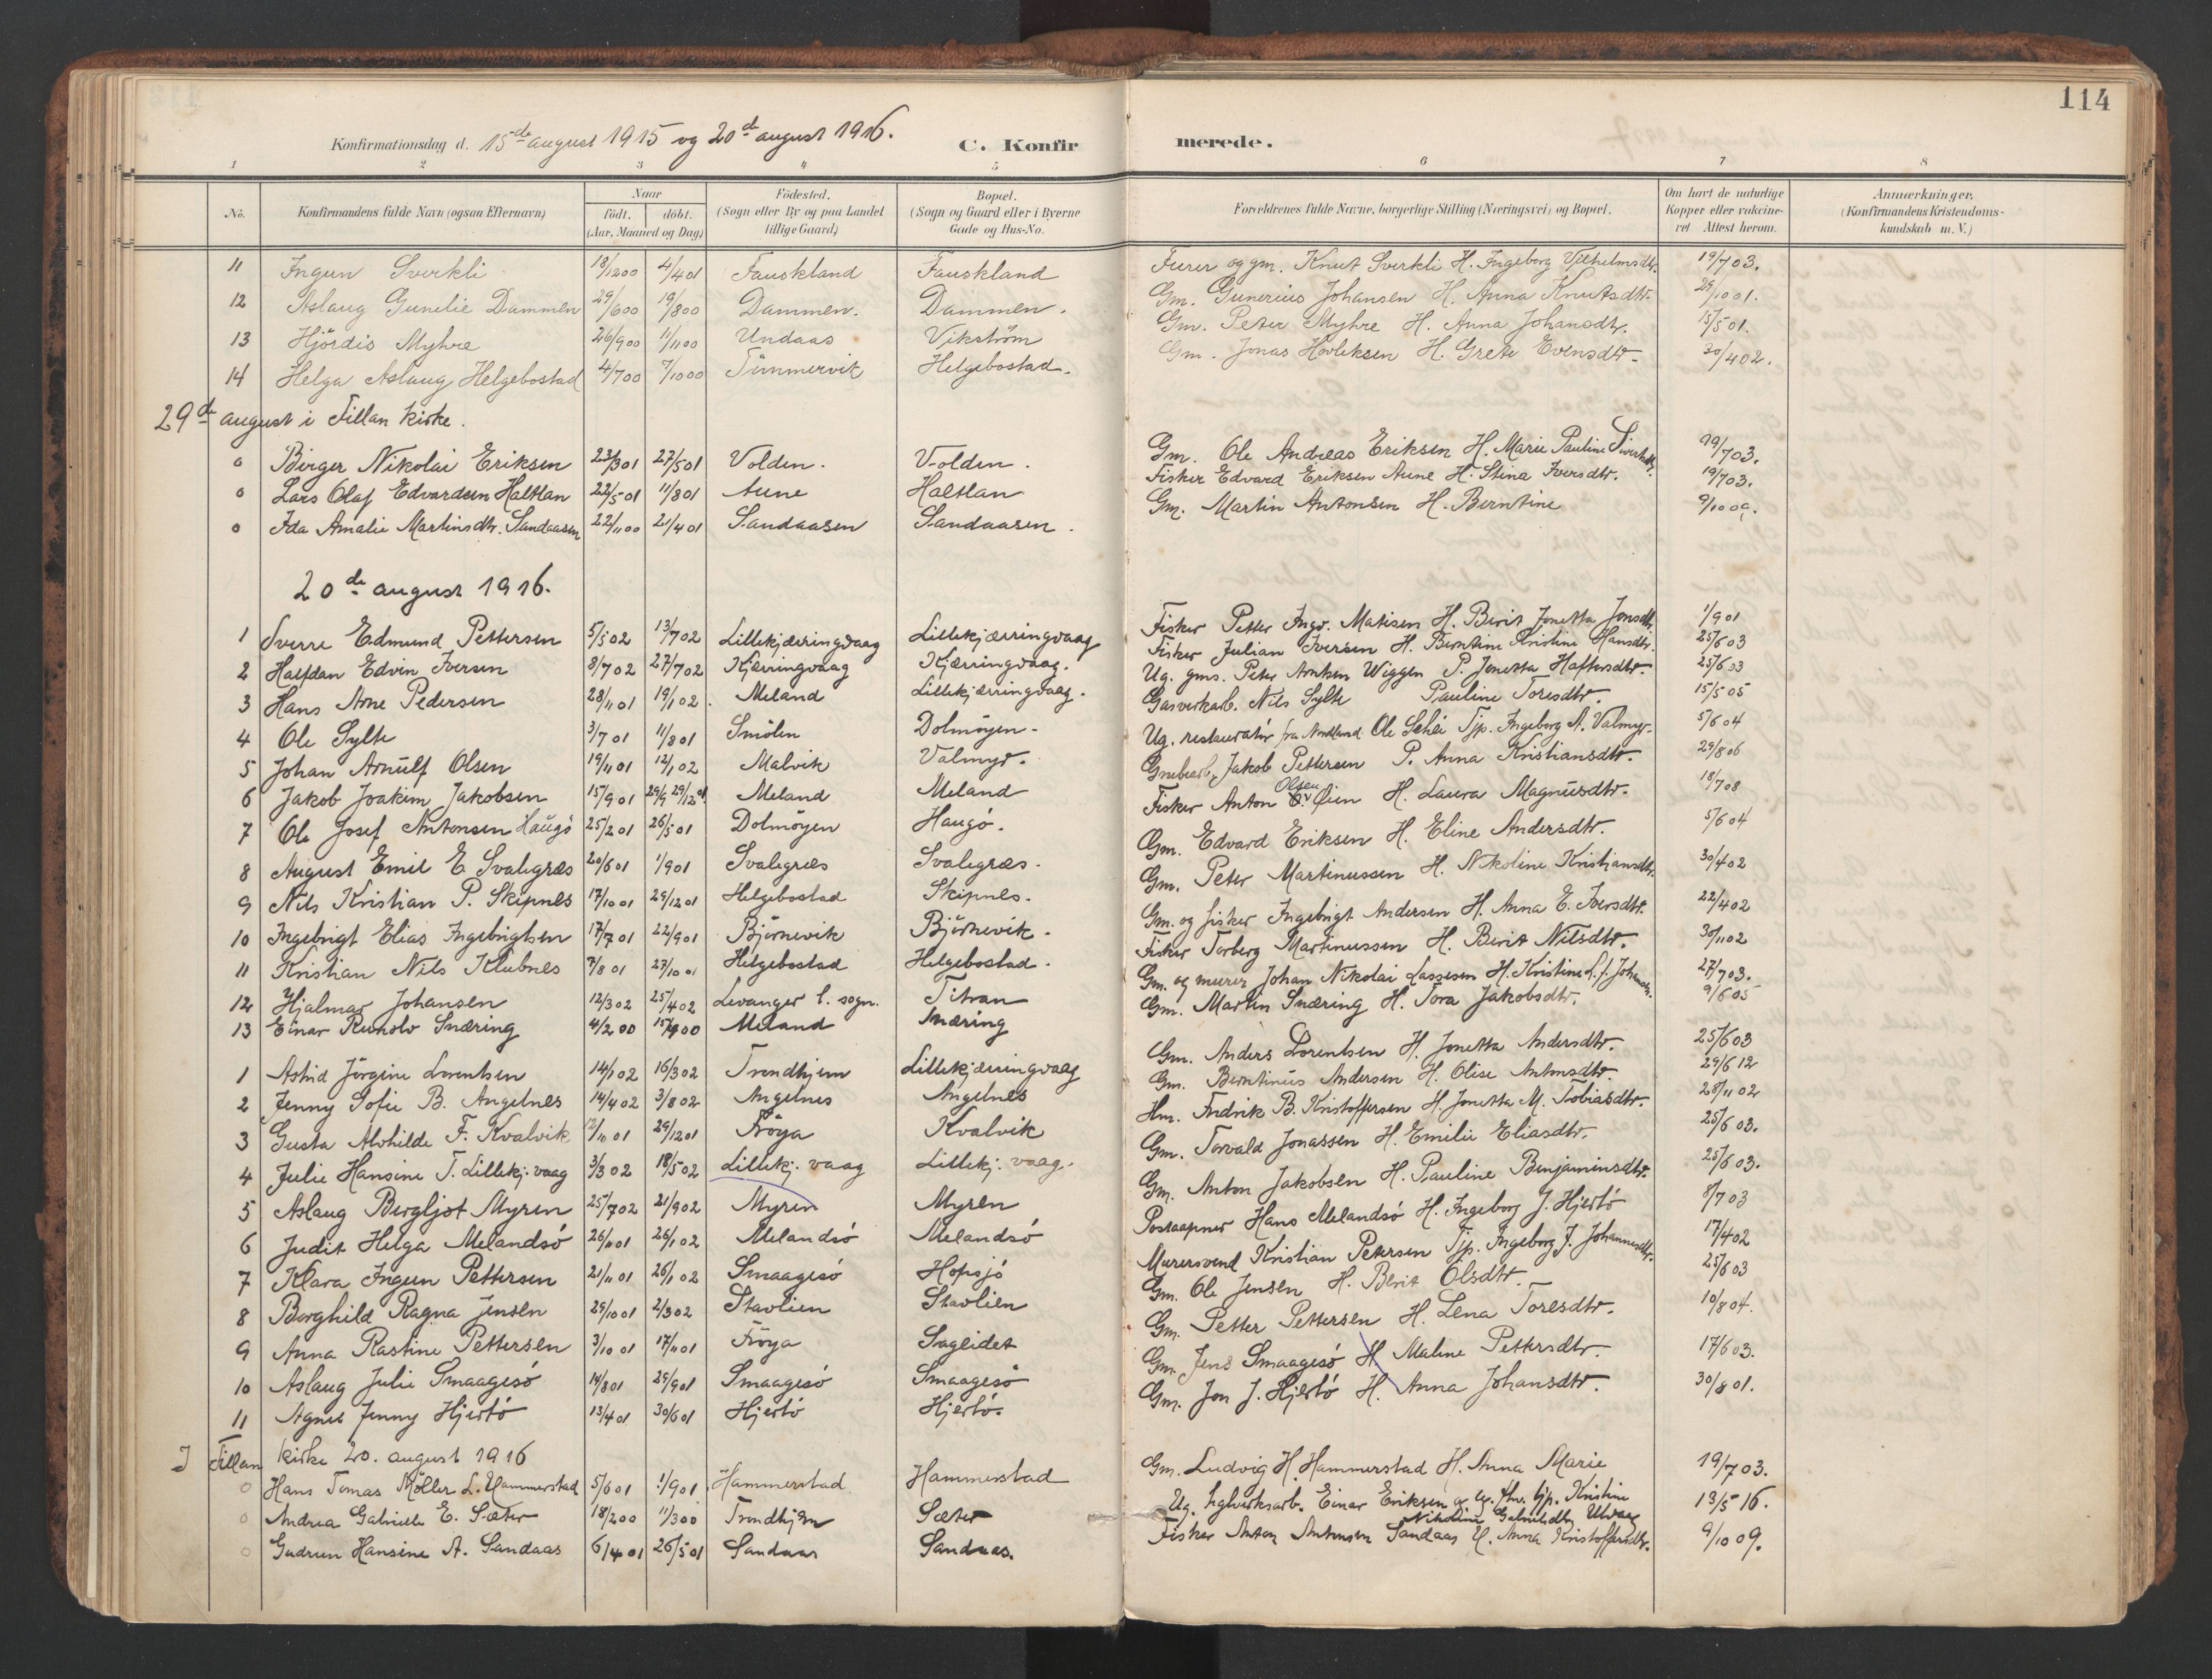 114
Konfirmationsdag d. 15de august 1915 og 20de august 1916. C. Konfirmerede.
1 2 3 4 5 6 7 8
No. Konfirmandens fulde Navn (ogsaa Efternavn) Naar födt. döbt. (Aar, Maaned og Dag) Födested. (Sogn eller By og paa Landet tillige Gaard) Bopæl. (Sogn og Gaard eller i Byerne Gade og Hus-No. Forældrenes fulde Navne, borgerlige Stilling (Næringsvei) og Bopæl. Om havt de naturlige Kopper eller vakcineret Attest herom. Anmærkninger. (Konfirmandens Kristendomskundskab m. V.)
11 Ingun Sverkli 18/1200 4/401 Fauskland Fauskland Furer og gm. Knut Sverkli H. Ingeborg Vilhelmsdtr. 19/703.
12 Aslaug Gunelie Dammen 29/600 19/800 Dammen. Dammen. Gm. Gunerius Johansen H. Anna Knutsdtr. 29/1001.
13 Hjördis Myhre 26/900 1/1100 Undaas Vikström Gm. Peter Myhre H. Anna Johansdtr. 15/501.
14 Helga Aslaug Helgebostad 4/700 7/1000 Timmervik Helgebostad. Gm. Jonas H. Grete Evensdtr. 30/402.
29de august i Fillan kirke.
0 Birger Nikolai Eriksen 23/301 27/501 Volden. Volden. Gm. Ole Andreas Eriksen H. Marie Pauline 19/703.
0 Lars Olaf Edvardsen Haltlan 22/501 11/801 Aune Haltlan Fisker Edvard Eriksen Aune H. Stina Iversdtr. 19/703.
0 Ida Amalie Martinsdtr. Sandaasen 22/1100 21/401 Sandaasen Sandaasen. Gm. Martin Antonsen H. Berntine 9/1009.
20de august 1916.
1 Sverre Edmund Pettersen 5/502 13/702 Lillekjærringvaag Lillekjærringvaag Fisker Petter Ingv. Matisen H. Berit Jonetta Jonsdtr. 1/901
2 Halfdan Edvin Iversen 8/702 27/702 Kjærringvaag Kjærringvaag. Fisker Julian Iversen H. Berntine Kristine Hansdtr. 25/603
3 Hans Arne Pedersen 28/1101 19/102. Meland Lillekjærringvaag. Ug. gms. Peter Arntsen Wiggen P. Jonetta Haftorsdtr. 25/603
4 Ole Sylte 3/701 11/801 Smölen Dolmöyen. Gasverkarb. Nils Sylte Pauline Toresdtr. 15/505
5 Johan Arnulf Olsen 19/1101 12/102 Malvik Valmyr. Ug. restauratör fra Nordland Ole Tjp. Ingeborg A. Valmyr. 5/604
6 Jakob Joakim Jakobsen 15/901 29/9 29/1201 Meland Meland Grubearb. Jakob Pettersen P. Anna Kristiansdtr. 29/806
7 Ole Josef Antonsen Haugö 25/201 26/501 Dolmöyen Haugö. Fisker Anton Olsen Öien H. Laura Magnusdtr. 18/708
8 August Emil E. Svalegræs 20/601 1/901 Svalegræs Svalegræs. Gm. Edvard Eriksen H. Eline Andersdtr. 5/604
9 Nils Kristian P. Skipnes 17/1001 29/1201 Helgebostad Skipnes. Gm. Peter Martinussen H. Nikoline Kristiansdtr. 30/402
10 Ingebrigt Elias Ingebrigtsen 17/701 22/901 Björnevik Björnevik. Gm. og fisker Ingebrigt Andersen H. Anna E. Iversdtr. 22/402
11 Kristian Nils Klubnes 7/801 27/1001 Helgebostad Helgebostad. Fisker Torberg Martinussen H. Berit Nilsdtr. 30/1102
12 Hjalmar Johansen 12/302 25/402 Levanger l. sogn. Titran Gm. og murer Johan Nikolai Lassesen H. Kristine L. f. 27/703.
13 Einar Runolv Snæring 4/200 15/900 Meland Snæring Gm. Martin Snæring H. Tora Jakobsdtr. 9/605
1 Astrid Jörgine Lorentsen 14/102 16/302 Trondhjem Lillekjærringvaag Gm. Anders Lorentsen H. Jonetta Andersdtr. 25/603
2 Jenny Sofie B. Angelnes 14/402 3/802 Angelnes Angelnes Gm. Berntinus Andersen H. Olise Antonsdtr. 29/612
3 Gusta Alvhilde F. Kvalvik 12/1101 29/1201 Fröya Kvalvik Hm. Fredrik B. Kristoffersen H. Jonetta M. Tobiasdtr. 28/1102
4 Julie Hansine T. Lillekj. vaag 3/302 18/502 Lillekj. vaag Lillekj. vaag. Gm. Torvald Jonassen H. Emilie Eliasdtr. 25/603.
5 Aslaug Bergljot Myren 25/702 21/902 Myren Myren Gm. Anton Jakobsen H. Pauline Benjaminsdtr. 25/603.
6 Judit Helga Melandsö 26/1101 26/102 Melandsö Melandsö Postaapner Hans Melandsö H. Ingeborg J. Hjertö 8/703
7 Klara Ingeun Pettersen 21/1101 26/102 Smaagesö Hopsjö Murersvend Kristian Petersen Tjp. Ingeborg J. Johannesdtr. 17/402
8 Borghild Ragna Jensen 29/1001 2/302 Stavlien Stavlien Gm. Ole Jensen H. Berit Olsdtr. 25/603
9 Anna Kastine Pettersen 3/1001 17/1101 Fröya Sagleidet Gm. Petter Pettersen H. Lena Toresdtr. 10/804.
10 Aslaug Julie Smaagesö 14/801 29/901 Smaagesö Smaagesö Gm. Jens Smaagesö H. Maline Pettersdtr. 17/603.
11 Agnes Jenny Hjertö 13/401 30/601 Hjertö Hjertö. Gm. Jon J. Hjertö H. Anna Johansdtr. 30/801.
I Fillan kirke 20. august 1916
0 Hans Tomas Möller L. Hammerstad 5/601 1/901 Hammerstad Hammerstad Gm. Ludvig H. Hammerstad H. Anna Marie 19/703.
0 Andrea Gabrielle E. Sæter 18/200 11/300 Trondhjem Sæter Ug. Einar Eriksen og tjp. Kristine Nikoline 13/516.
0 Gudrun Hansine A. Sandaas 6/401 26/501 Sandaas Sandaas. Fisker Anton Antonsen Sandaas H. Anna Kristoffersdtr. 9/1009.